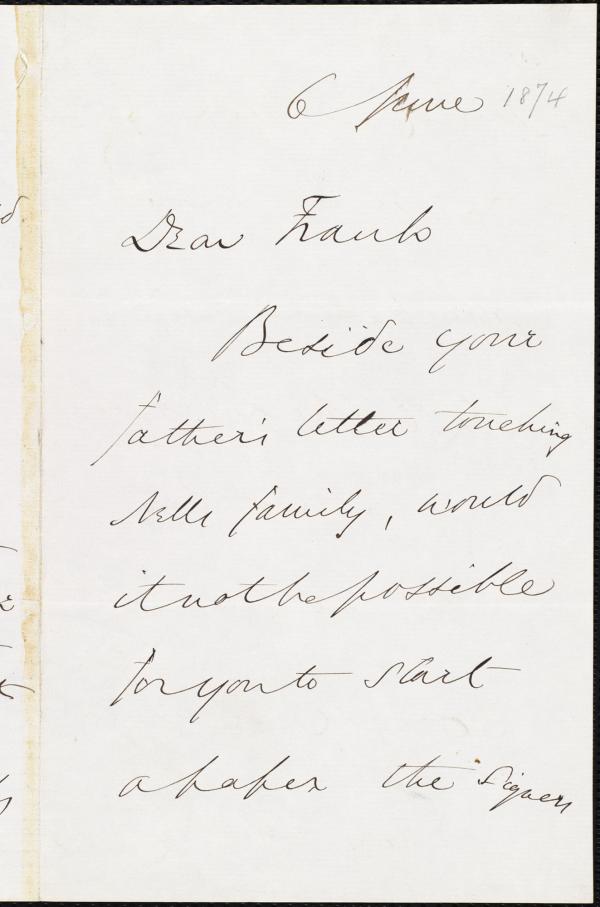 6 June 1874
Dear Frank
Beside your
father's letter touching
Nells family, would
it not be possible
for you to start
a paper the signers